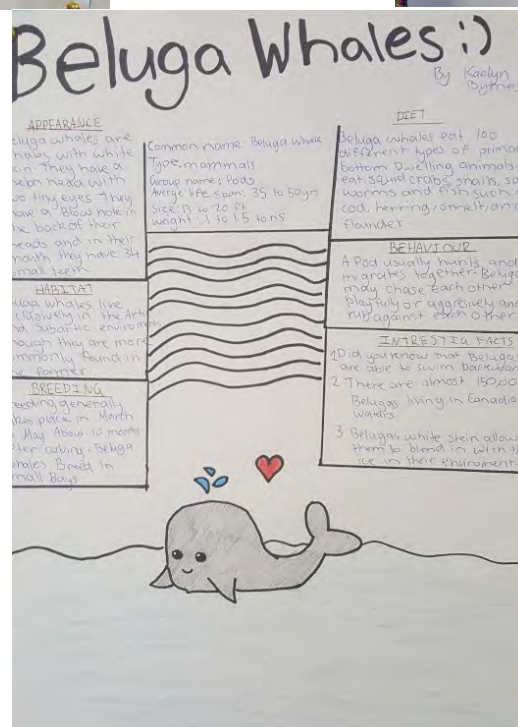 Beluga Whales :)
By Kaelyn
Byrnes
APPEARANCE
eluga whales are
hales with white
in They have a
with
o tiny eyes They
ave a Blow hole in
he back of their
eads and in their
mouth they have 34
mall teeth
HABITAT
uga whales live
in the Arct
d Subartic
hough they are more
mmonly found in
e former
BREEDING
eeding generally
place in March
May About 10 months
ter calving. Beluga
hales Breed in
mall Bays
Common name: Beluga Whale
Type: mammals
Group name: Pods
Average life span: 35 to 50yrs
Size: 13 to 20 ft
Weight: 1 to 1.5 tons
DIET
Beluga whales eat 100
different types of
bottom Dwelling animals
eat squid crabs, snails,
worms and fish such
cod, herring, smelt, an
flounder
BEHAVIOUR
A Pod usually hunts, and
migrates together. Beluga
may chase each other
Playfully or aggresively and
rub against each other
INTRESTIG FACTS
1 Did you know that Belugas
are able to swim backwar
2 There are almost 150,00
Belugas living in Canadia
waters
3 Belugas white skin allow
them to blend in with th
ice in their enviroment